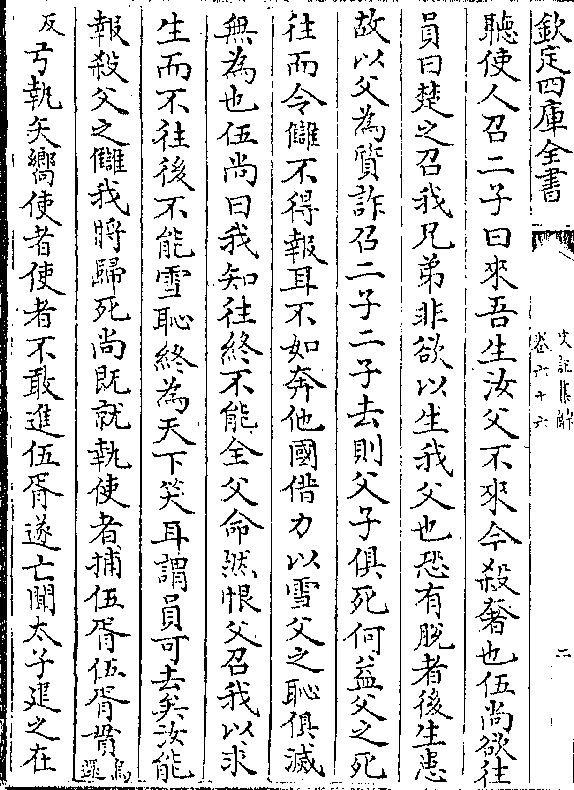 欽定四庫全書
史記集解
卷六十六
二
聽使人召二子曰來吾生汝父不來今殺奢也伍尚欲往
員曰楚之召我兄弟非欲以生我父也恐有脫者後生患
故以父為質詐召二子二子去則父子俱死何益父之死
往而令讎不得報耳不如奔他國借力以雪父之恥俱滅
無為也伍尚曰我知往終不能全父命然恨父召我以求
生而不往後不能雪恥終為天下笑耳謂員可去矣汝能
報殺父之讎我將歸死尚既就執使者捕伍胥伍胥貫烏還
反弓執矢嚮使者使者不敢進伍胥遂亡聞太子建之在